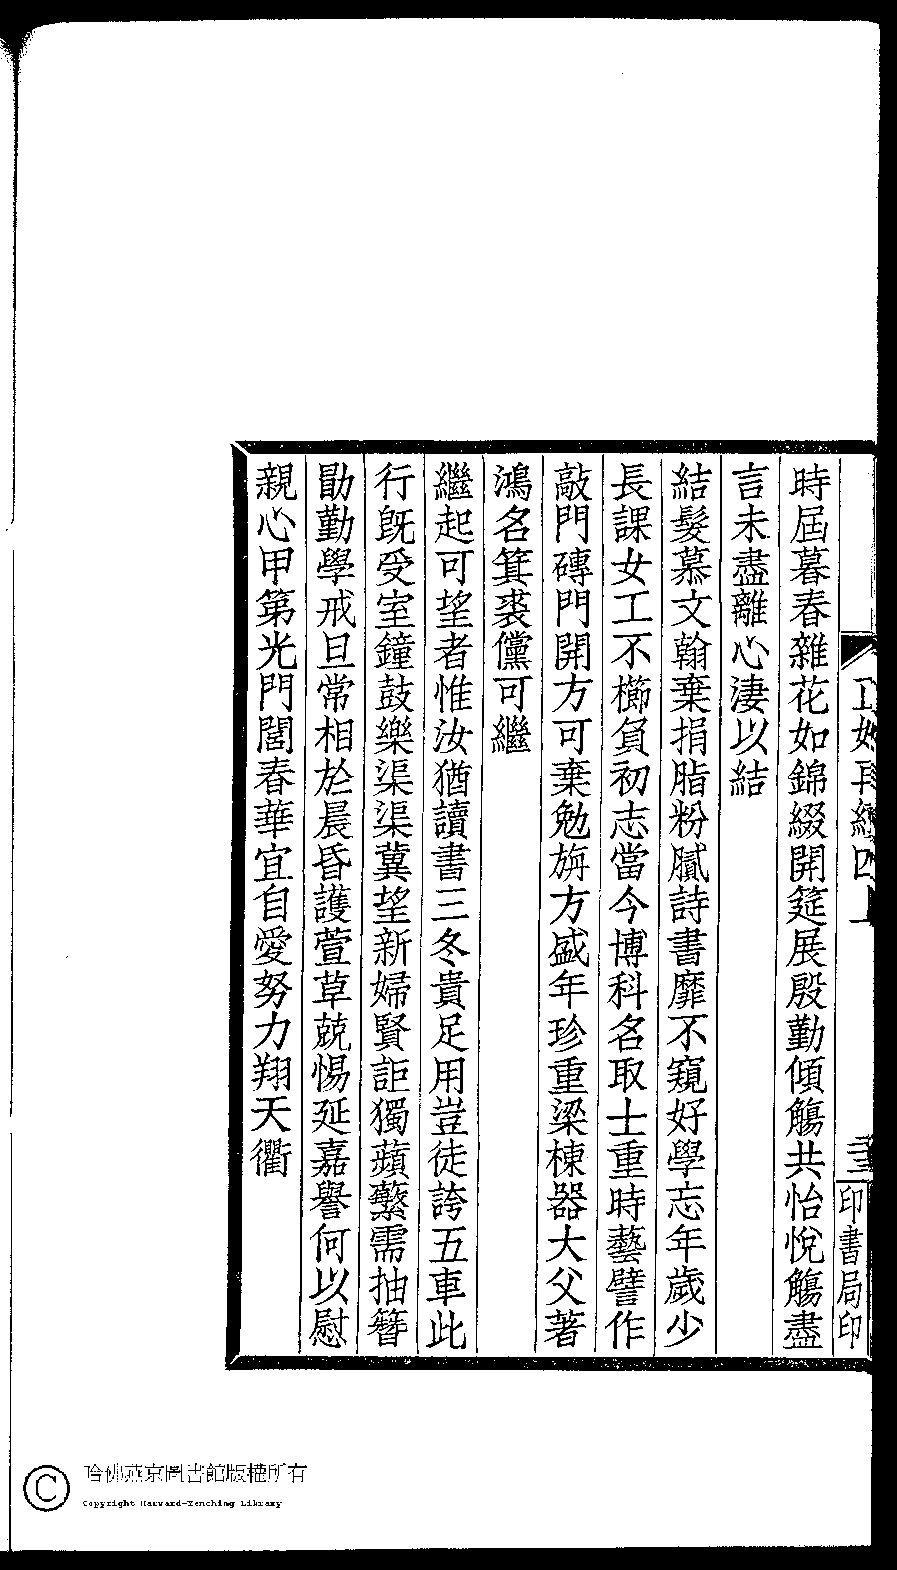 時屆暮春雜花如錦綴開筵展殷勤傾觴共怡悅觴盡
言未盡離心淒以結
結髮慕文翰棄捐脂粉膩詩書靡不窺好學忘年歲少
長課女工不櫛負初志當今博科名取士重時藝譬作
敲門磚門開方可棄勉旃方盛年珍重梁棟器大父著
鴻名箕裘儻可繼
繼起可望者惟汝猶讀書三冬貴足用豈徒誇五車此
行旣受室鐘鼓樂渠渠冀望新婦賢詎獨蘋蘩需抽簪
勖勤學戒旦常相於晨昏護萱草兢惕延嘉譽何以慰
親心甲第光門閭春華宜自愛努力翔天衢
印書局印
哈佛燕京圖書館版權所有
Copyright Harvard-Yenching Library